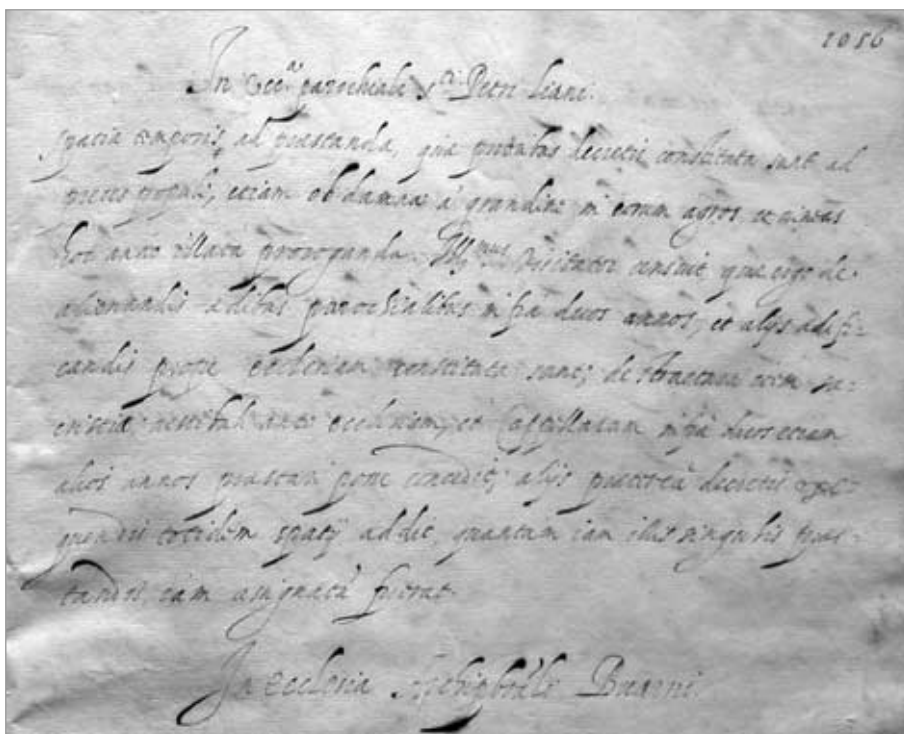 1056
In Ecc.a parochiali s.ti Petri Liani.
spatia temporis, ad praestanda, quae pluribus decretis constituta sunt ad
preces populi, etiam ob damna à grandine in eorum agros, et vineas
hoc anno illata proroganda Ill.mus Visitator censuit, quae ergo de
aedibus parochialibus infra duos annos, et alijs aedifi-
candis prope ecclesiam constituta sunt; de structura
ante ecclesiam, et infra duos etiam
alios annos praestari posse concedit; alijs praeterea decretis exe-
quendis totidem spatij addit, quantum iam illis singulis praes-
tandis, iam assignatū fuerat.
In ecclesia Buarni.